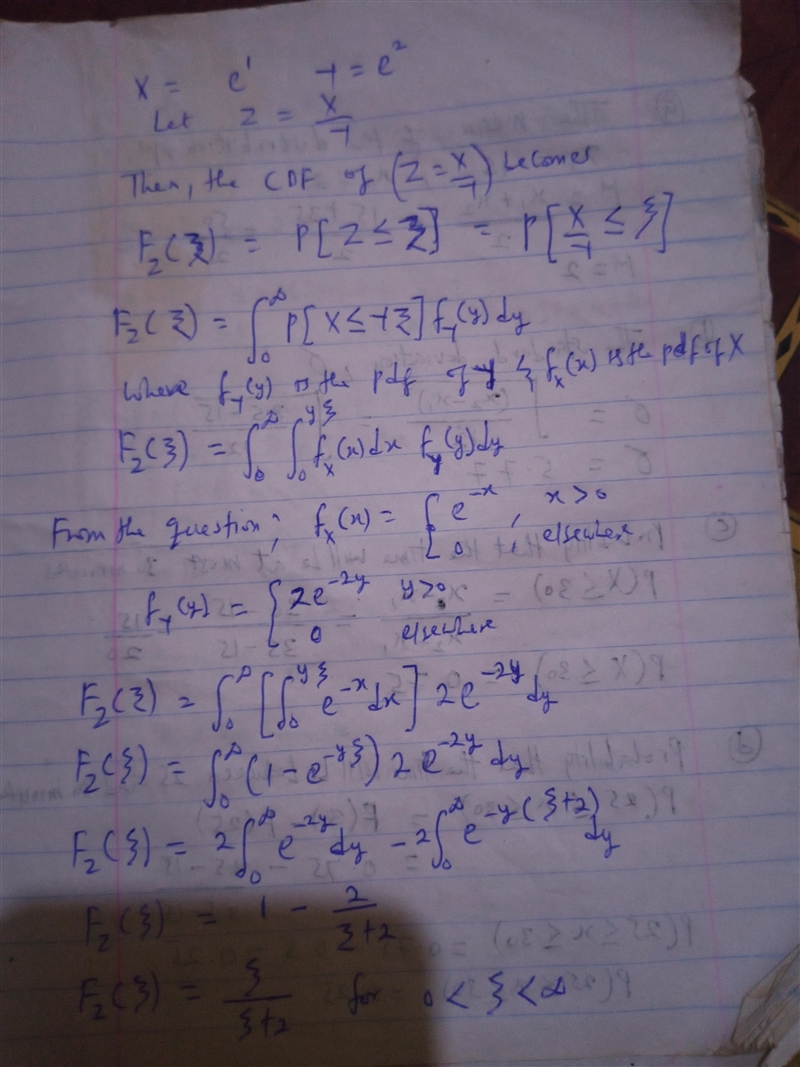 X = e¹ Y = e²
Let Z = X/Y
Then, the CDF of (Z = X/Y) becomes
F_Z(ξ) = P[Z ≤ ξ] = P[X/Y ≤ ξ]
F_Z(ξ) = ∫₀^∞ P[X ≤ Yξ] f_Y(y) dy
Where f_Y(y) is the pdf of y & f_X(x) is the pdf of X
F_Z(ξ) = ∫₀^∞ ∫₀^{yξ} f_X(x) dx f_Y(y) dy
From the question; f_X(x) = { e^{-x}, x > 0
0, elsewhere
f_Y(y) = { 2e^{-2y} y > 0
0 elsewhere
F_Z(ξ) = ∫₀^∞ [∫₀^{yξ} e^{-x} dx] 2e^{-2y} dy
F_Z(ξ) = ∫₀^∞ (1 - e^{-yξ}) 2e^{-2y} dy
F_Z(ξ) = 2∫₀^∞ e^{-2y} dy - 2∫₀^∞ e^{-y(ξ+2)} dy
F_Z(ξ) = 1 - 2/(ξ+2)
F_Z(ξ) = ξ/(ξ+2) for 0 < ξ < ∞